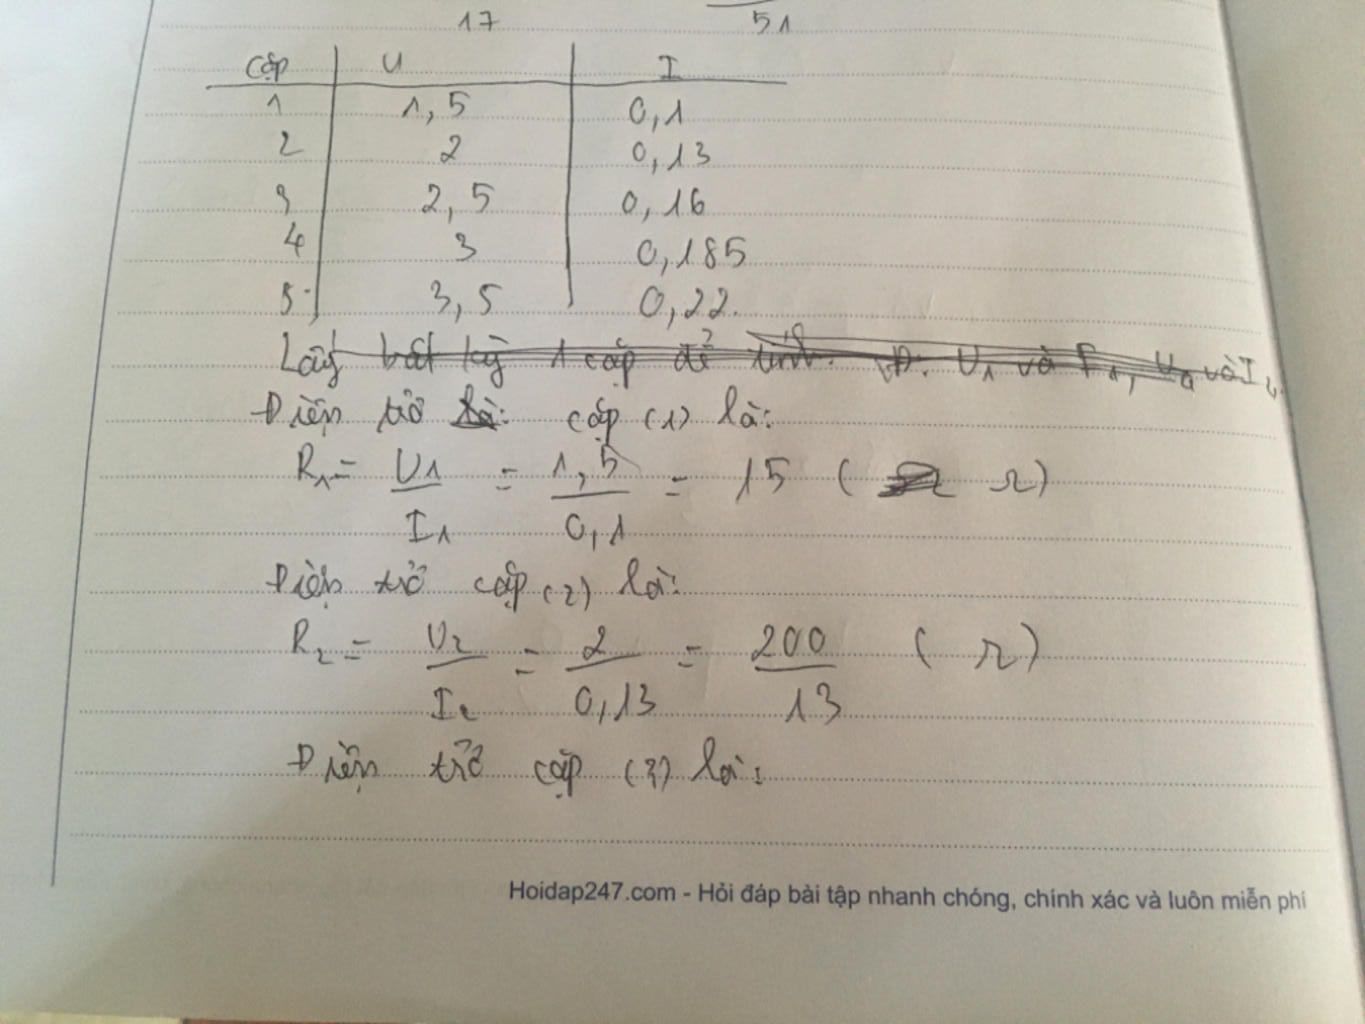 17 51
Cặp U I
1 1,5 0,1
2 2 0,13
3 2,5 0,16
4 3 0,185
5 3,5 0,22.
Lấy bất kỳ 1 cặp để tính. U1 và I1, và I
Điện trở là: cặp (1) là:
R1 = U1/I1 = 1,5/0,1 = 15 (Ω)
Điện trở cặp (2) là:
R2 = U2/I2 = 2/0,13 = 200/13 (Ω)
Điện trở cặp (3) là:
Hoidap247.com - Hỏi đáp bài tập nhanh chóng, chính xác và luôn miễn phí